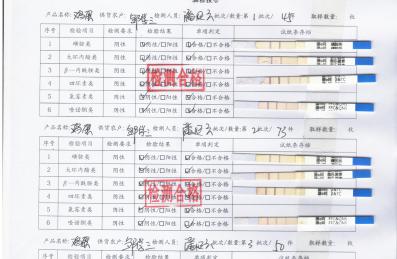 产品名称: 鸡蛋 供货农户: 检测人员: 批次/数量:第1批次/ 45 件 取样数量: 枚
序号 检验项目 检测要求 检验结果 单项判定 试纸条存储
1 磺胺类 阴性 ☑阴性/□阳性 ☑合格/□不合格
2 大环内酯类 阴性 ☑阴性/□阳性 ☑合格/□不合格
3 β-内酰胺类 阴性 ☑阴性/□阳性 ☑合格/□不合格
4 四环素类 阴性 ☑阴性/□阳性 ☑合格/□不合格
5 氯霉素类 阴性 ☑阴性/□阳性 ☑合格/□不合格
6 喹诺酮类 阴性 ☑阴性/□阳性 ☑合格/□不合格
检测合格
产品名称: 鸡蛋 供货农户: 检测人员: 批次/数量:第2批次/ 75 件 取样数量: 枚
序号 检验项目 检测要求 检验结果 单项判定 试纸条存储
1 磺胺类 阴性 ☑阴性/□阳性 ☑合格/□不合格
2 大环内酯类 阴性 ☑阴性/□阳性 ☑合格/□不合格
3 β-内酰胺类 阴性 ☑阴性/□阳性 ☑合格/□不合格
4 四环素类 阴性 ☑阴性/□阳性 ☑合格/□不合格
5 氯霉素类 阴性 ☑阴性/□阳性 ☑合格/□不合格
6 喹诺酮类 阴性 ☑阴性/□阳性 ☑合格/□不合格
检测合格
产品名称: 鸡蛋 供货农户: 检测人员: 批次/数量:第3批次/ 50 件 取样数量: 枚
序号 检验项目 检测要求 检验结果 单项判定 试纸条存储